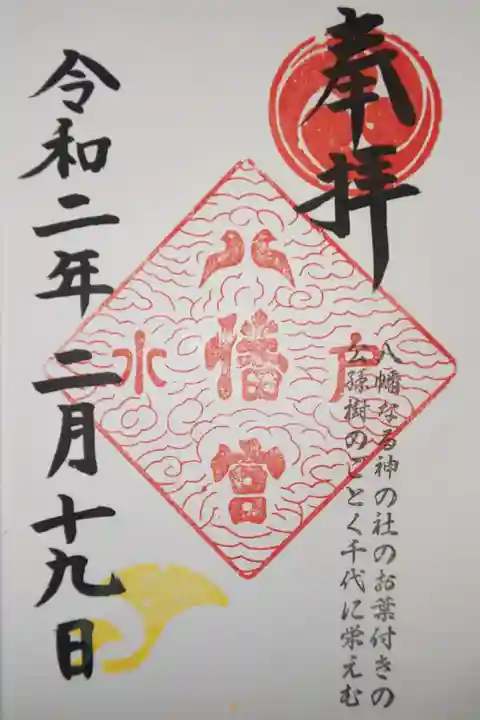 奉拝
八幡宮
水戸
八幡なる神の社のお葉付きの
公孫樹のごとく千代に栄えむ
令和二年二月十九日